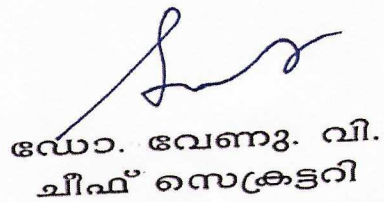 ഡോ. വേണു. വി.
ചീഫ് സെക്രട്ടറി